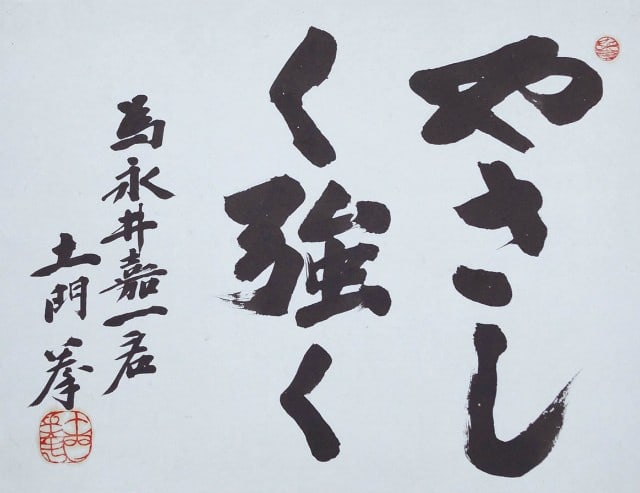 やさし
く強く
為永井嘉一君
土門拳